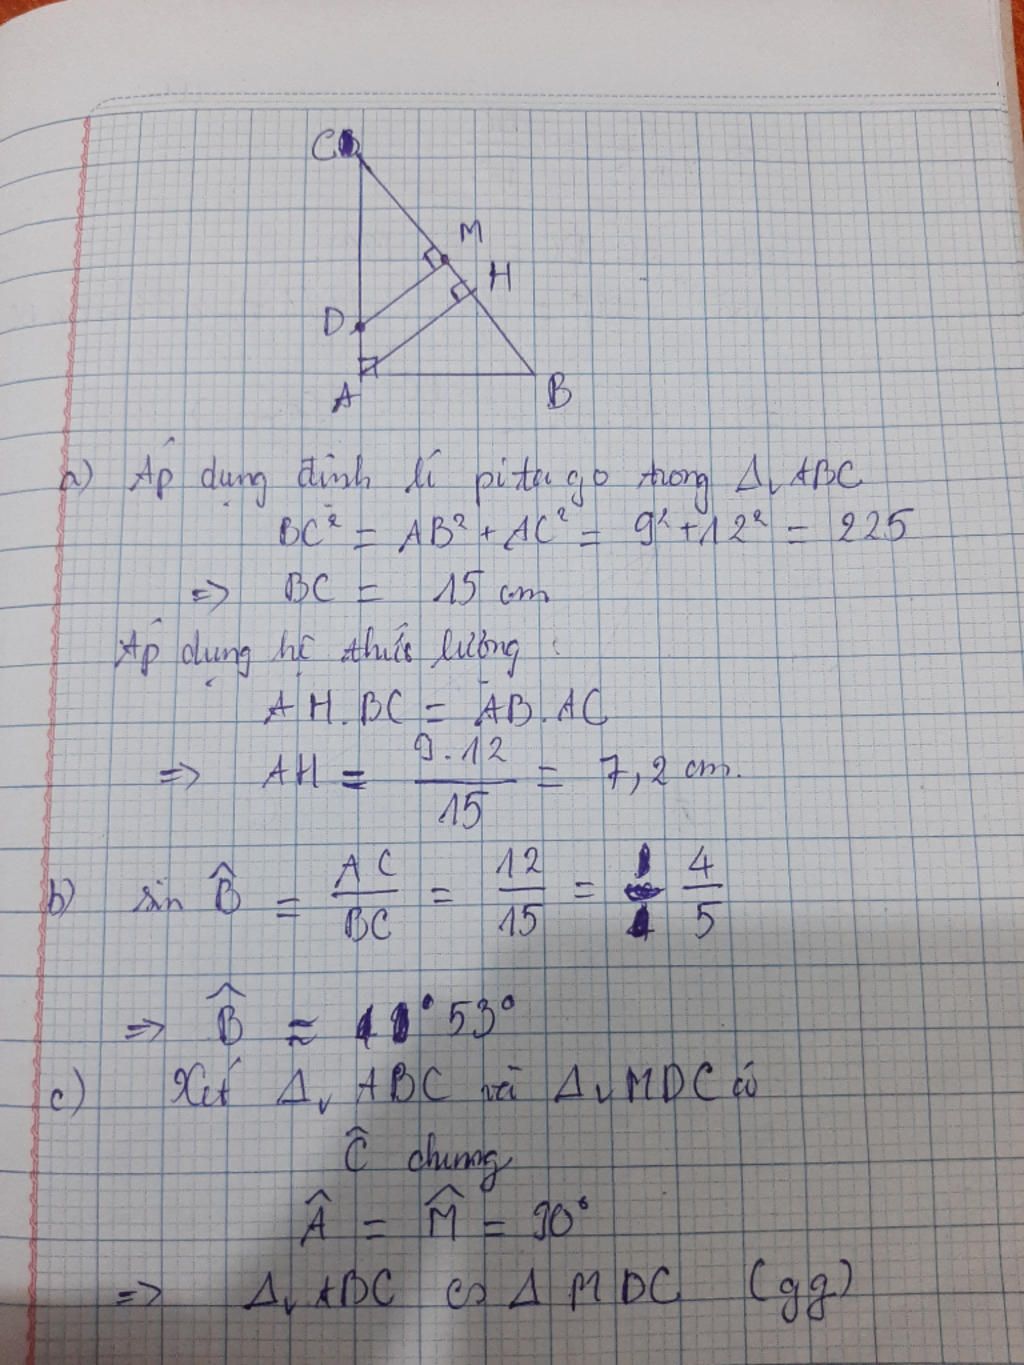 C
M
H
D
A
B
a) Áp dụng định lí pitago trong Δv ABC
BC² = AB² + AC² = 9² + 12² = 225
=> BC = 15 cm
Áp dụng hệ thức lượng :
AH.BC = AB.AC
=> AH = 9.12/15 = 7,2 cm.
b) sin B̂ = AC/BC = 12/15 = 4/5
=> B̂ ≈ 53°
c) Xét Δv ABC và Δv MDC có
Ĉ chung
Â = M̂ = 90°
=> Δv ABC ∽ Δ MDC (gg)